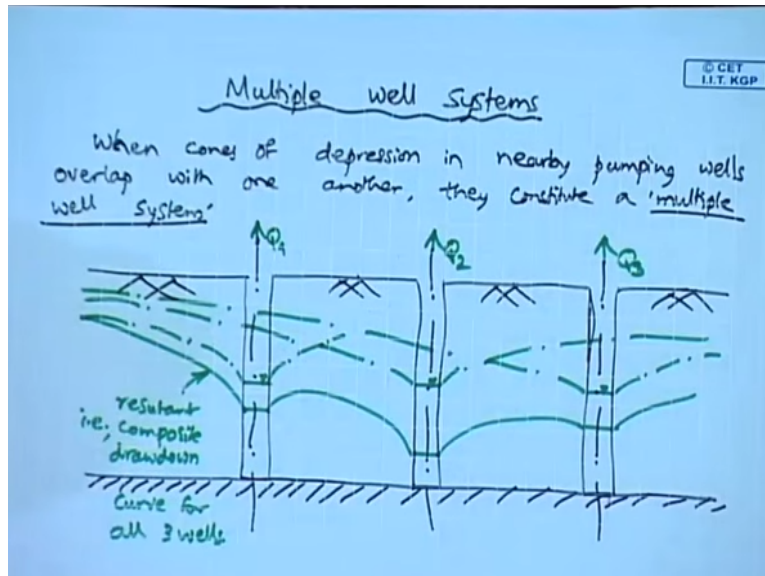 © CET
I.I.T. KGP
Multiple well systems
When cones of depression in nearby pumping wells
overlap with one another, they constitute a 'multiple
well system'
Q1
Q2
Q3
resutant
i.e; composite
drawdown
Curve for
all 3 wells